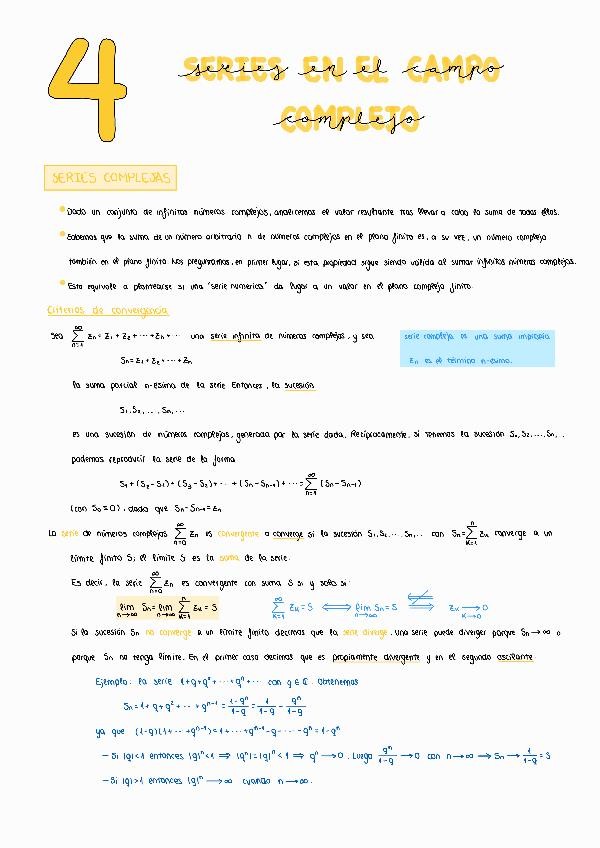 4
series en el campo
complejo
SERIES COMPLEJAS
• Dado un conjunto de infinitos números complejos, analicemos el valor resultante tras llevar a cabo la suma de todos ellos.
• Sabemos que la suma de un número arbitrario n de números complejos en el plano finito es, a su vez, un número complejo
también en el plano finito. Nos preguntamos, en primer lugar, si esta propiedad sigue siendo válida al sumar infinitos números complejos.
• Esto equivale a plantearse si una "serie numérica" da lugar a un valor en el plano complejo finito.
Criterios de convergencia
Sea ∑_{n=1}^{∞} Zn = Z1 + Z2 + ··· + Zn + ··· una serie infinita de números complejos, y sea
serie compleja es una suma impropia
Sn = Z1 + Z2 + ··· + Zn
Zn es el término n-ésimo.
la suma parcial n-ésima de la serie. Entonces, la sucesión
S1, S2, ..., Sn, ...
es una sucesión de números complejos, generada por la serie dada. Recíprocamente, si tenemos la sucesión S1, S2, ..., Sn, ..
podemos reproducir la serie de la forma
S1 + (S2 - S1) + (S3 - S2) + ··· + (Sn - Sn-1) + ··· = ∑_{n=1}^{∞} (Sn - Sn-1)
(con S0 = 0), dado que Sn - Sn-1 = Zn
La serie de números complejos ∑_{n=0}^{∞} Zn es convergente o converge si la sucesión S1, S2, ... Sn, ... con Sn = ∑_{k=1}^{n} Zk converge a un
límite finito S; el límite S es la suma de la serie.
Es decir, la serie ∑_{n=0}^{∞} Zn es convergente con suma S si y solo si:
lim_{n→∞} Sn = lim_{n→∞} ∑_{k=1}^{n} Zk = S
∑_{k=1}^{∞} Zk = S ⟺ lim_{n→∞} Sn = S ⇍ ⟹ Zk →_{k→∞} 0
Si la sucesión Sn no converge a un límite finito decimos que la serie diverge. Una serie puede diverger porque Sn → ∞ o
porque Sn no tenga límite. En el primer caso decimos que es propiamente divergente y en el segundo oscilante.
Ejemplo: la serie 1 + q + q² + ··· + qⁿ + ··· con q ∈ ℂ. Obtenemos
Sn = 1 + q + q² + ··· + qⁿ⁻¹ = (1-qⁿ)/(1-q) = 1/(1-q) - qⁿ/(1-q)
ya que (1-q)(1+···+qⁿ⁻¹) = 1+···+qⁿ⁻¹-q-···-qⁿ = 1-qⁿ
- Si |q|<1 entonces |q|ⁿ<1 ⟹ |qⁿ| = |q|ⁿ < 1 ⟹ qⁿ → 0. Luego qⁿ/(1-q) → 0 con n → ∞ ⟹ Sn → 1/(1-q) = S
- Si |q|>1 entonces |q|ⁿ → ∞ cuando n → ∞.